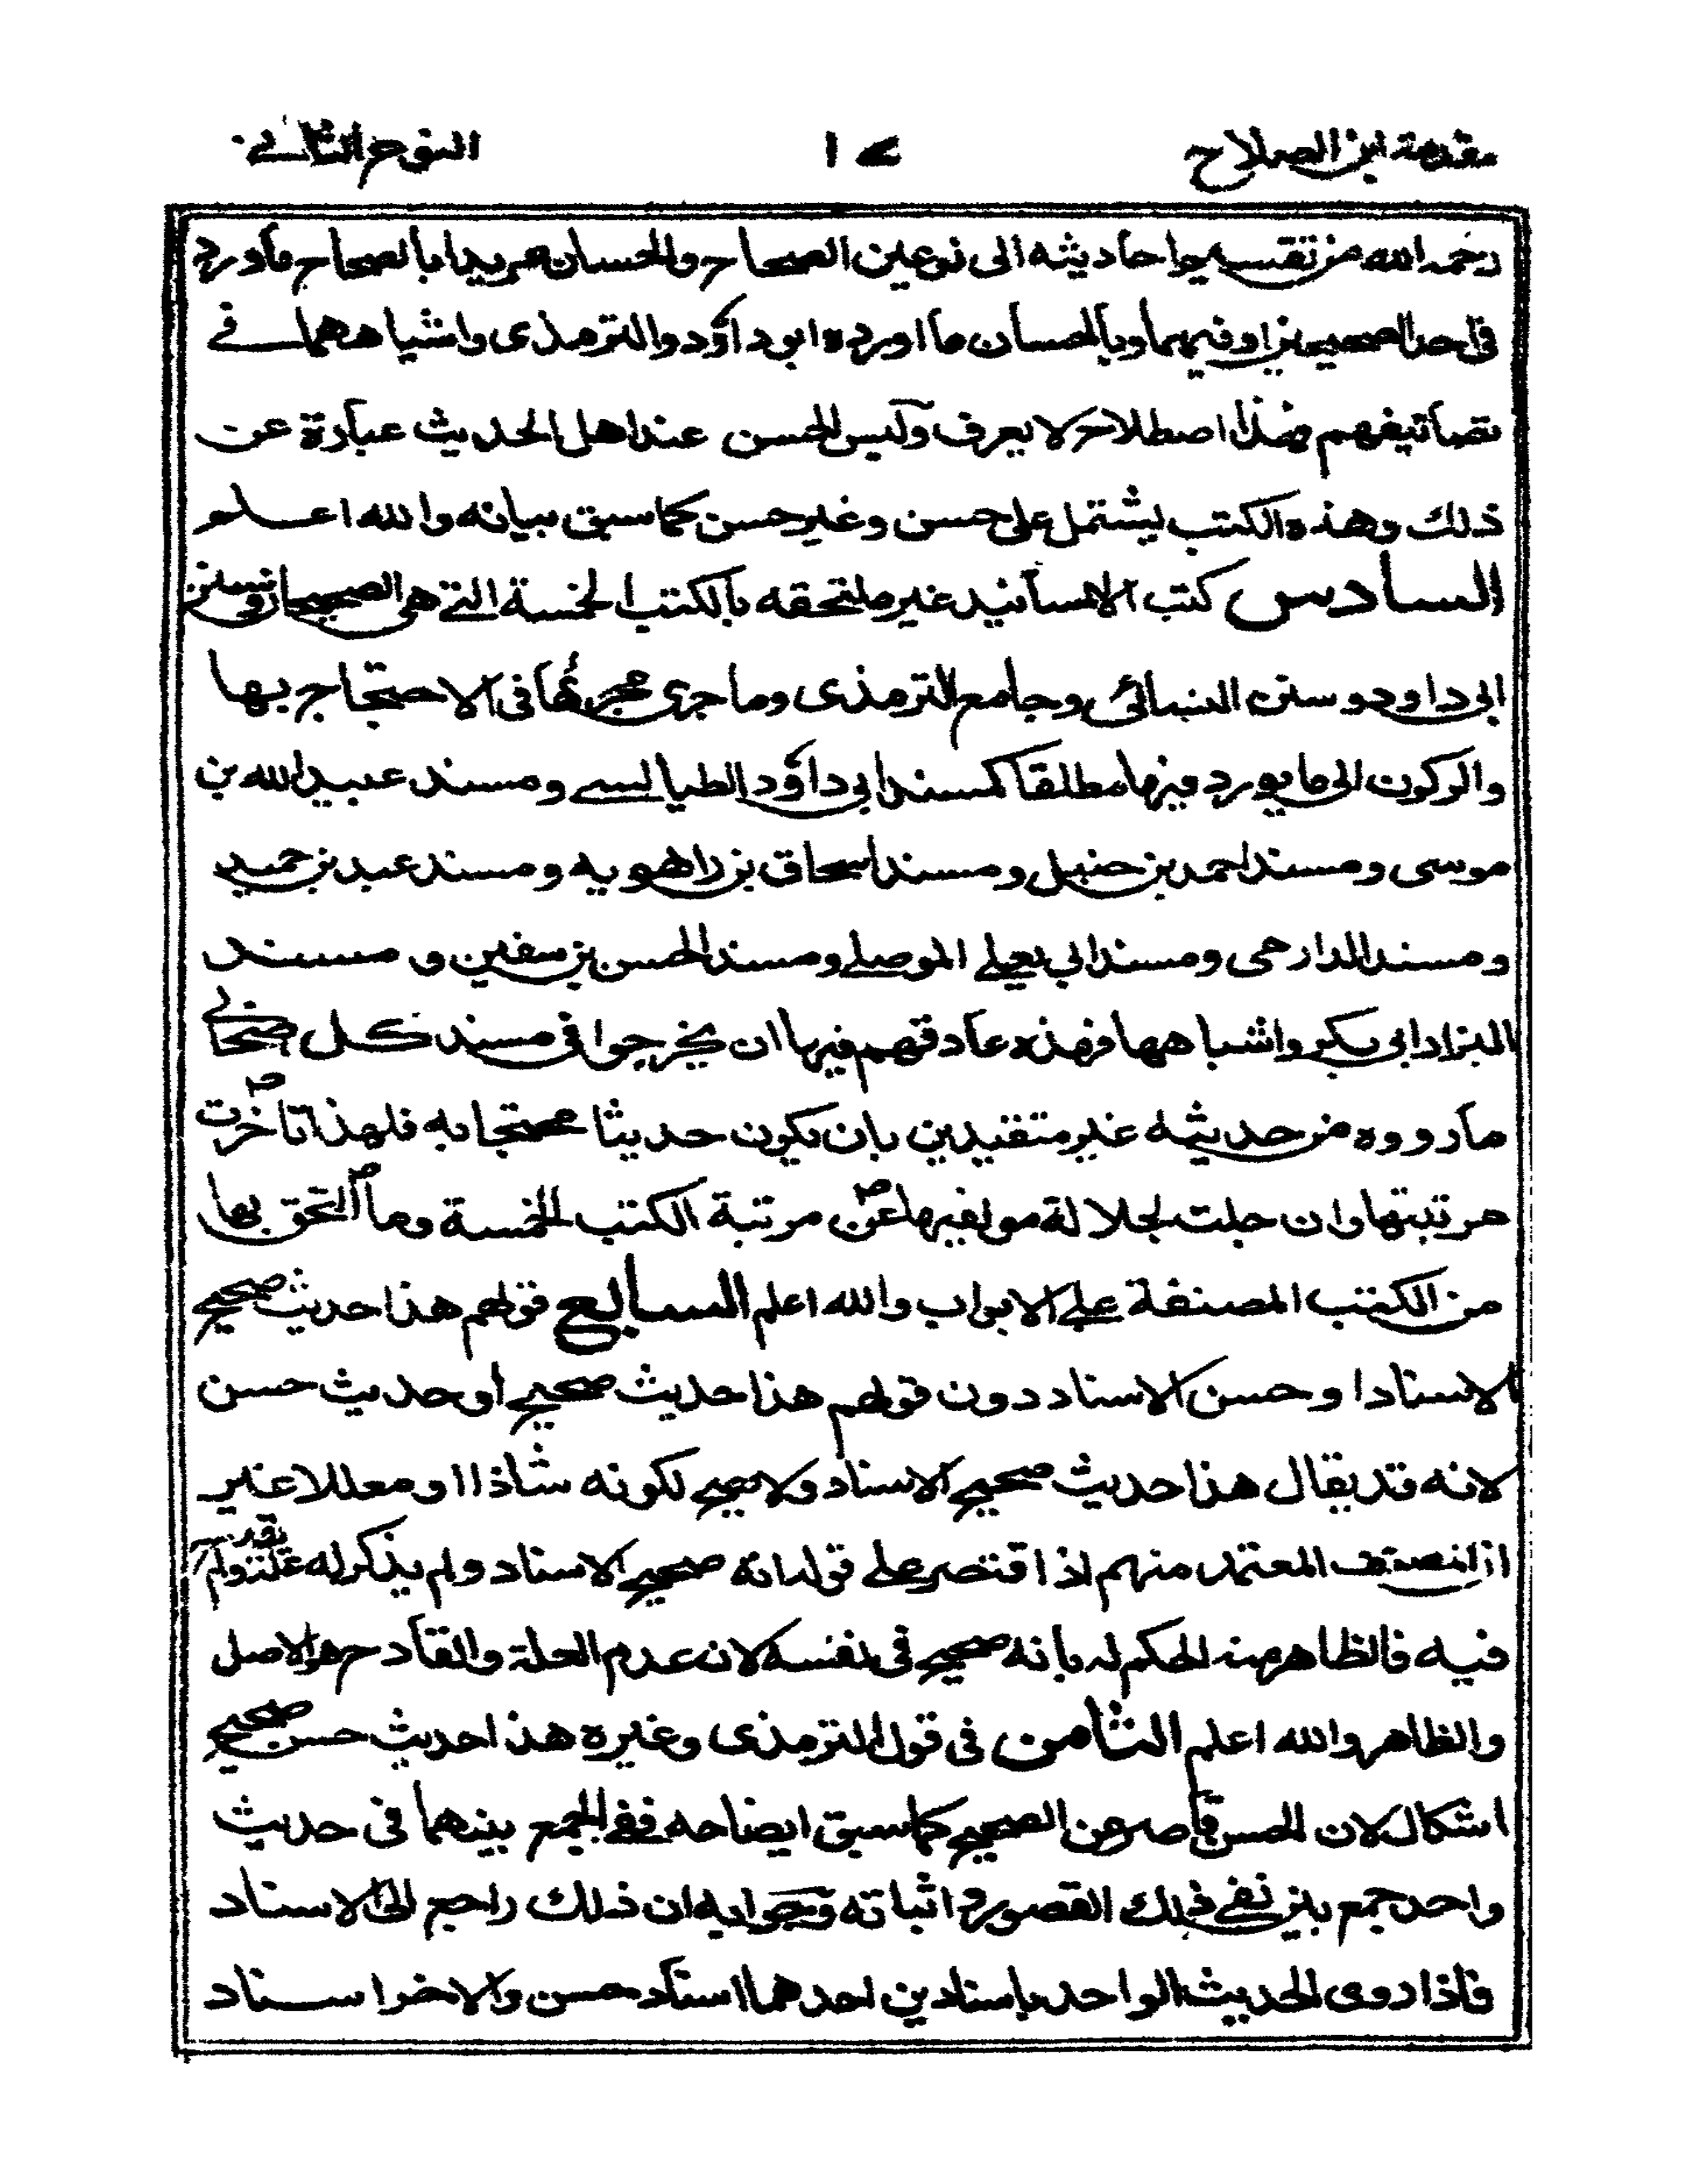 مقدمة ابن الصلاح
النوع الثانى
رحمه الله من تقسيم احاديثه الى نوعين الصحاح والحسان مريدا بالصحاح ماورد
فى احد الصحيحين او فيهما وبالحسان ما اورده ابو داؤد والترمذى واشباههما فى
تصانيفهم فهذا اصطلاح لا يعرف وليس الحسن عند اهل الحديث عبارة عن
ذلك وهذه الكتب يشتمل على حسن وغير حسن كما سبق بيانه والله اعلم
السادس كتب الاسانيد غير ملتحقه بالكتب الخمسة التى هى الصحيحان وسنن
ابى داود و سنن النسائى وجامع الترمذى وما جرى مجرٰها فى الاحتجاج بها
والركون الى ما يورد فيها مطلقا كمسند ابى داؤد الطيالسى ومسند عبيد الله بن
موسى ومسند احمد بن حنبل ومسند اسحاق بن راهويه ومسند عبد بن حميد
ومسند الدارمى ومسند ابى يعلى الموصلى ومسند الحسن بن سفين و مسند
البزار ابى بكر واشباهها فهذه عادتهم فيها ان يخرجوا فى مسند كل صحابى
ما رووه من حديثه غير متقيدين بان يكون حديثا محتجابه فلهذا تأخرت
مرتبتها وان جلت لجلالة مولفيها عن مرتبة الكتب الخمسة وما التحق بها
من الكتب المصنفة على الابواب والله اعلم السابع قولهم هذا حديث صحيح
الاسناد ا و حسن الاسناد دون قولهم هذا حديث صحيح او حديث حسن
لانه قد يقال هذا حديث صحيح الاسناد ولا يصح لكونه شاذا او معللا غير
ان المصنف المعتمد منهم اذا اقتصر على قوله انه صحيح الاسناد ولم يذكر له علة ولم يقدح
فيه فالظاهر منه الحكم له بانه صحيح فى نفسه لان عدم العلة والقادح هو الاصل
والظاهر والله اعلم الثامن فى قول الترمذى وغيره هذا حديث حسن صحيح
اشكال لان الحسن قاصر عن الصحيح كما سبق ايضاحه ففى الجمع بينهما فى حديث
واحد جمع بين نفى ذلك القصور و اثباته وجوابه ان ذلك راجع الى الاسناد
فاذا روى الحديث الواحد باسنادين احدهما اسناد حسن والاخر اسناد